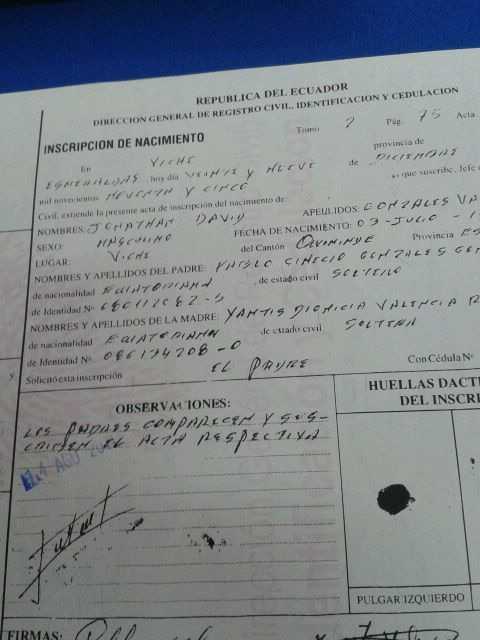 REPUBLICA DEL ECUADOR
DIRECCION GENERAL DE REGISTRO CIVIL, IDENTIFICACION Y CEDULACION
INSCRIPCION DE NACIMIENTO Tomo 2 Pág. 75 Acta
En VICHE provincia de
ESMERALDAS, hoy día VEINTE Y NUEVE de DICIEMBRE
mil novecientos NOVENTA Y CINCO que suscribe, Jefe
Civil, extiende la presente acta de inscripción del nacimiento de:
NOMBRES: JONATHAN DAVID APELLIDOS: GONZALES VA
SEXO: MASCULINO FECHA DE NACIMIENTO: 03-JULIO-1
LUGAR: VICHE del Cantón QUININDE Provincia ES
NOMBRES Y APELLIDOS DEL PADRE: PABLO GONZALES
de nacionalidad ECUATORIANA, de estado civil SOLTERO
de Identidad Nº
NOMBRES Y APELLIDOS DE LA MADRE: DIONICIA VALENCIA
de nacionalidad ECUATORIANA, de estado civil SOLTERA
de Identidad Nº 080174208-0
Solicitó esta inscripción EL PADRE Con Cédula Nº
OBSERVACIONES: HUELLAS DACT
DEL INSCRI
LOS PADRES COMPARECEN Y SUS-
CRIBEN EL ACTA RESPECTIVA
AGO
PULGAR IZQUIERDO
FIRMAS: